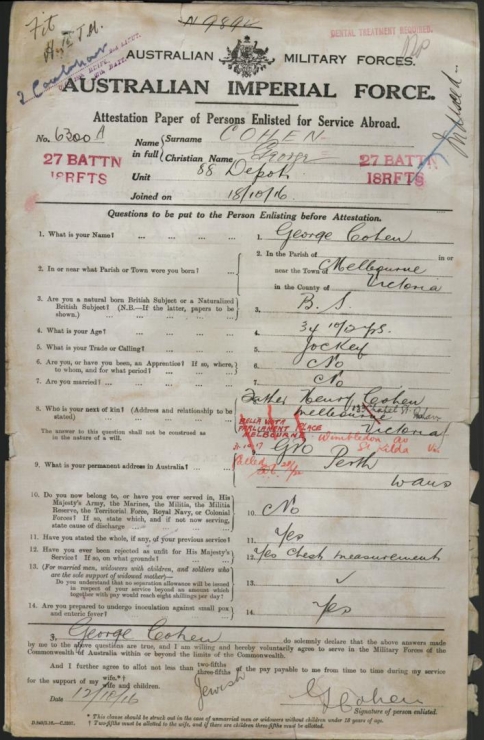 Fit
N 9892
DENTAL TREATMENT REQUIRED.
AUSTRALIAN MILITARY FORCES.
AUSTRALIAN IMPERIAL FORCE.
Attestation Paper of Persons Enlisted for Service Abroad.
No. 6300 A
Name in full
Surname COHEN
Christian Name George
27 BATTN
18RFTS
27 BATTN
18RFTS
Unit 88 Depot.
Joined on 18/10/16.
Questions to be put to the Person Enlisting before Attestation.
1. What is your Name? ... ... ... 1. George Cohen
2. In or near what Parish or Town were you born? ...
2. In the Parish of in or
near the Town of Melbourne
in the County of Victoria
3. Are you a natural born British Subject or a Naturalized
British Subject? (N.B.—If the latter, papers to be
shown.) ... ... ... 3. B. S.
4. What is your Age? ... ... ... 4. 34 10/12 yrs.
5. What is your Trade or Calling? ... ... 5. Jockey
6. Are you, or have you been, an Apprentice? If so, where,
to whom, and for what period? ... ... 6. No
7. Are you married? ... ... ... 7. No
8. Who is your next of kin? (Address and relationship to be
stated) ... ... ... 8. Father Henry Cohen
Melbourne
Victoria
The answer to this question shall not be construed as
in the nature of a will.
PARLIAMENT PLACE
MELBOURNE
Wimbledon av
St Kilda Vic
9. What is your permanent address in Australia? ... 9. GPO Perth
W aus
10. Do you now belong to, or have you ever served in, His
Majesty's Army, the Marines, the Militia, the Militia
Reserve, the Territorial Force, Royal Navy, or Colonial
Forces? If so, state which, and if not now serving,
state cause of discharge ... ... 10. No
11. Have you stated the whole, if any, of your previous service? 11. Yes
12. Have you ever been rejected as unfit for His Majesty's
Service? If so, on what grounds? ... 12. Yes Chest measurement
13. (For married men, widowers with children, and soldiers who
are the sole support of widowed mother)—
Do you understand that no separation allowance will be issued
in respect of your service beyond an amount which
together with pay would reach eight shillings per day? 13. ✓
14. Are you prepared to undergo inoculation against small pox
and enteric fever? ... ... ... 14. Yes
I, George Cohen do solemnly declare that the above answers made
by me to the above questions are true, and I am willing and hereby voluntarily agree to serve in the Military Forces of the
Commonwealth of Australia within or beyond the limits of the Commonwealth.
And I further agree to allot not less than two-fifths three-fifths of the pay payable to me from time to time during my service
for the support of my wife.* wife and children.
Jewish
Date 12/10/16
G Cohen
Signature of person enlisted.
* This clause should be struck out in the case of unmarried men or widowers without children under 18 years of age.
† Two-fifths must be allotted to the wife, and if there are children three-fifths must be allotted.